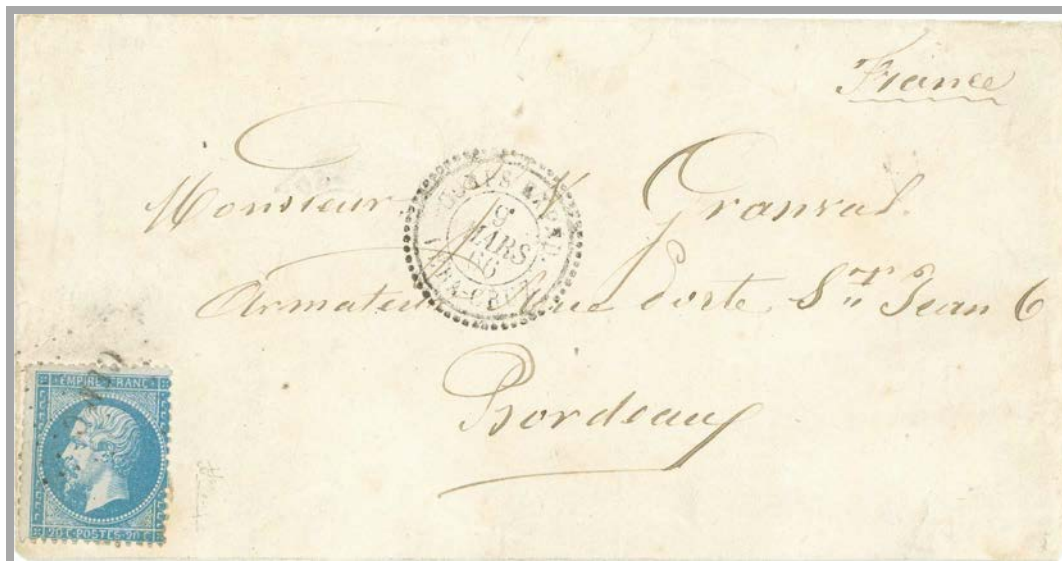 France
Monsieur Granval.
Armateur rue Porte St Jean 6
Bordeaux
CORPS EXP. MEX.
9
MARS
66
VERA-CRUZ
EMPIRE FRANC
20 C POSTES 20 C